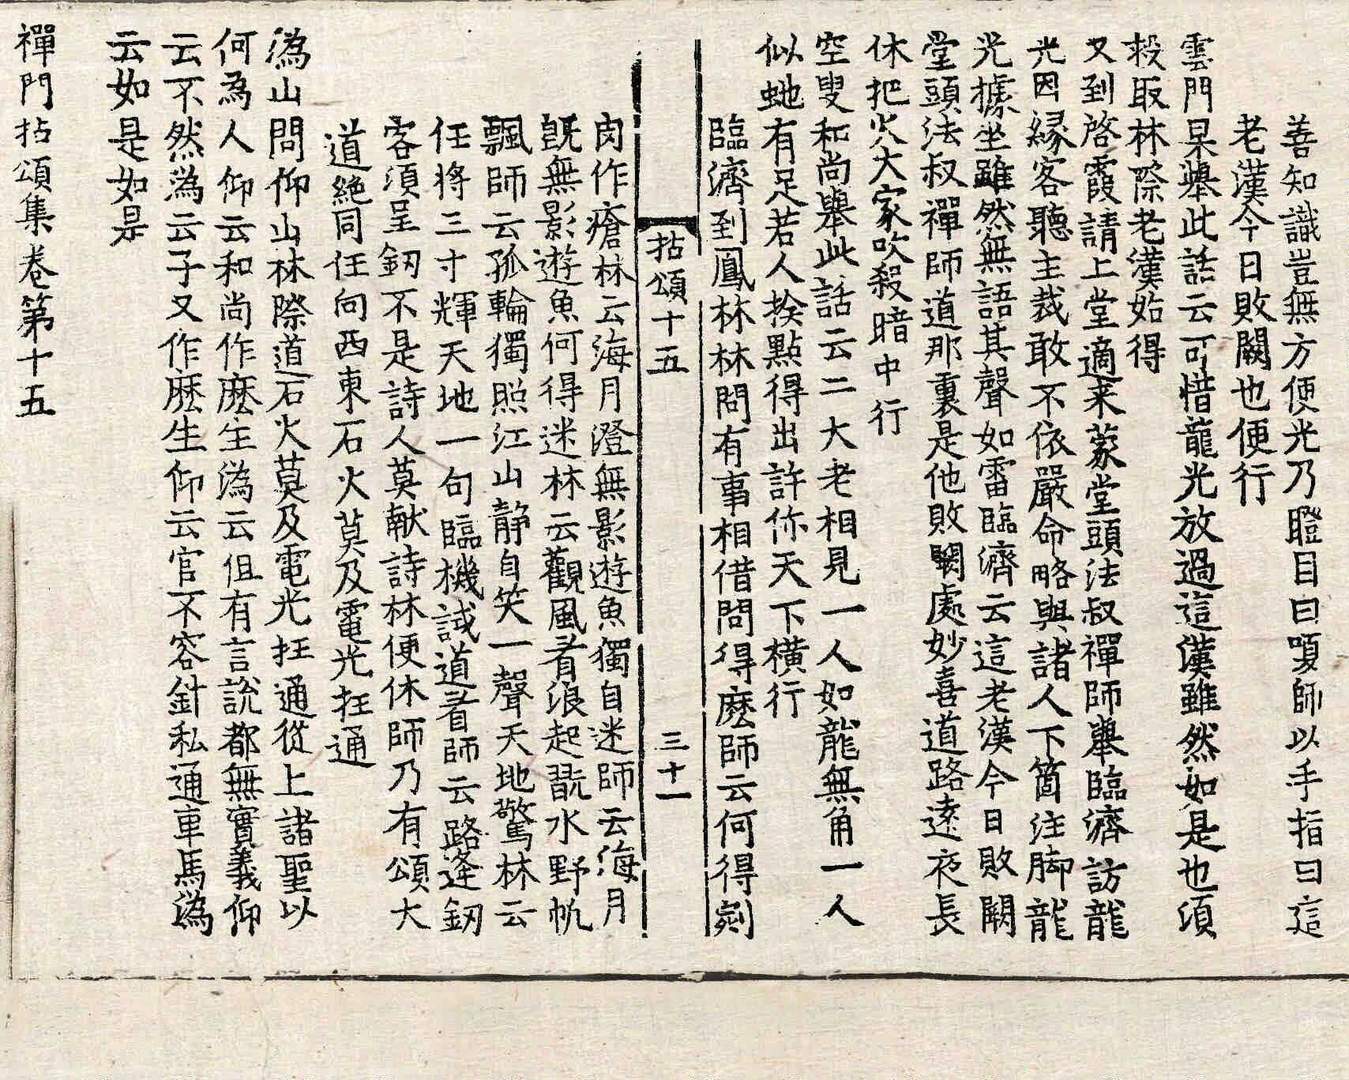 善知識豈無方便光乃瞪目曰嗄師以手指曰這
老漢今日敗闕也便行
雲門杲舉此話云可惜龍光放過這漢雖然如是也須
救取林際老漢始得
又到啓霞請上堂適来蒙堂頭法叔禪師舉臨濟訪龍
光因緣客聽主裁敢不依嚴命略與諸人下箇注脚龍
光據坐雖然無語其聲如雷臨濟云這老漢今日敗闕
堂頭法叔禪師道那裏是他敗闕處妙喜道路逺夜長
休把火大家吹殺暗中行
空叟和尚舉此話云二大老相見一人如龍無角一人
似虵有足若人挨點得出許你天下横行
臨濟到鳳林林問有事相借問得麽師云何得剜
拈頌十五
三十一
肉作瘡林云海月澄無影遊魚獨自迷師云海月
旣無影遊魚何得迷林云觀風看浪起翫水野帆
飄師云孤輪獨照江山静自笑一聲天地驚林云
任将三寸輝天地一句臨機試道看師云路逢釼
客須呈釼不是詩人莫献詩林便休師乃有頌大
道絶同任向西東石火莫及電光扗通
溈山問仰山林際道石火莫及電光扗通從上諸聖以
何為人仰云和尚作麽生溈云伹有言說都無實義仰
云不然溈云子又作麽生仰云官不容針私通車馬溈
云如是如是
禪門拈頌集卷第十五